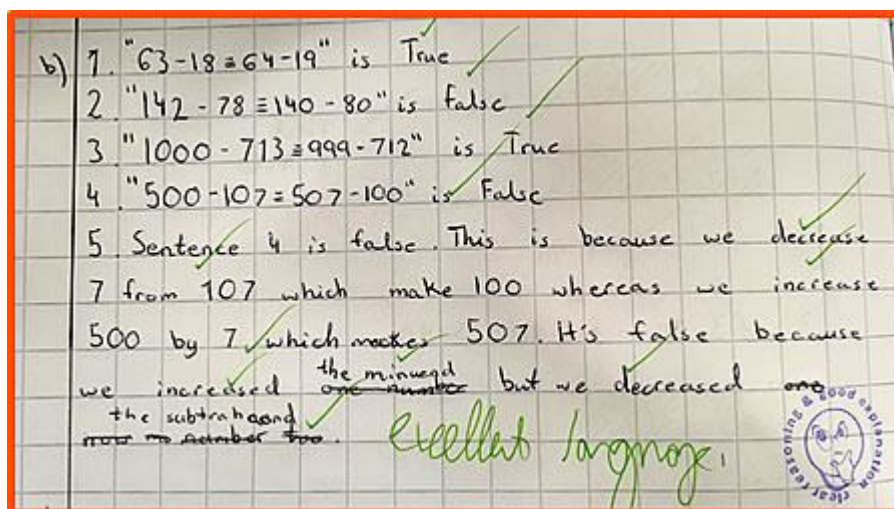 b) 1. "63-18≡64-19" is True
2. "142-78≡140-80" is false
3. "1000-713≡999-712" is True
4. "500-107=507-100" is False
5. Sentence 4 is false. This is because we decrease
7 from 107 which make 100 whereas we increase
500 by 7, which makes 507. It's false because
we increased the minuend but we decreased
the subtrahend.
excellent language.
clear reasoning & good explanation